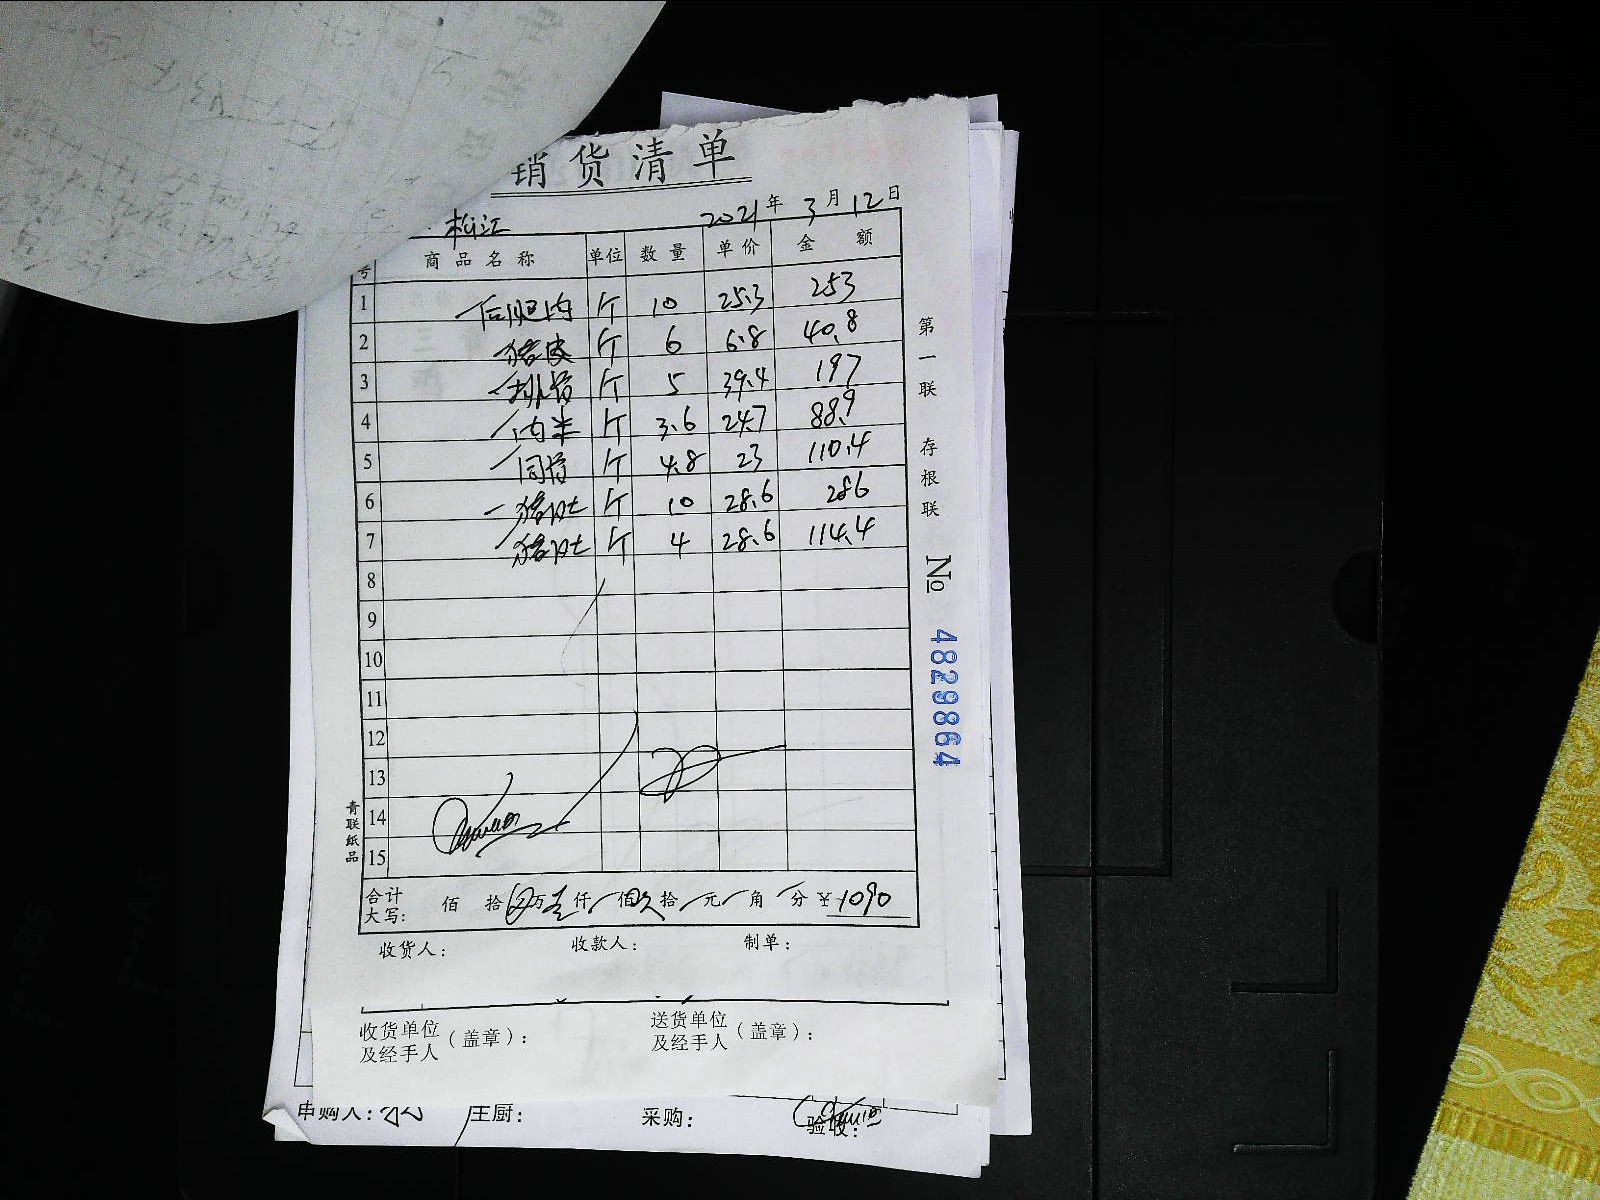 销货清单
松江 2021年3月12日
号 商品名称 单位 数量 单价 金额
1 后腿肉 斤 10 25.3 253
2 猪皮 斤 6 6.8 40.8
3 排骨 斤 5 39.4 197
4 肉米 斤 3.6 24.7 88.9
5 同骨 斤 4.8 23 110.4
6 猪肚 斤 10 28.6 286
7 猪肚 斤 4 28.6 114.4
8
9
10
11
12
13
14
15
合计
大写: 佰 拾 万 仟 佰 拾 元 角 分 ¥1090
收货人: 收款人: 制单:
第一联 存根联
No 4829864
青联纸品
收货单位
及经手人(盖章): 送货单位
及经手人(盖章):
申购人: 主厨: 采购: 验收: